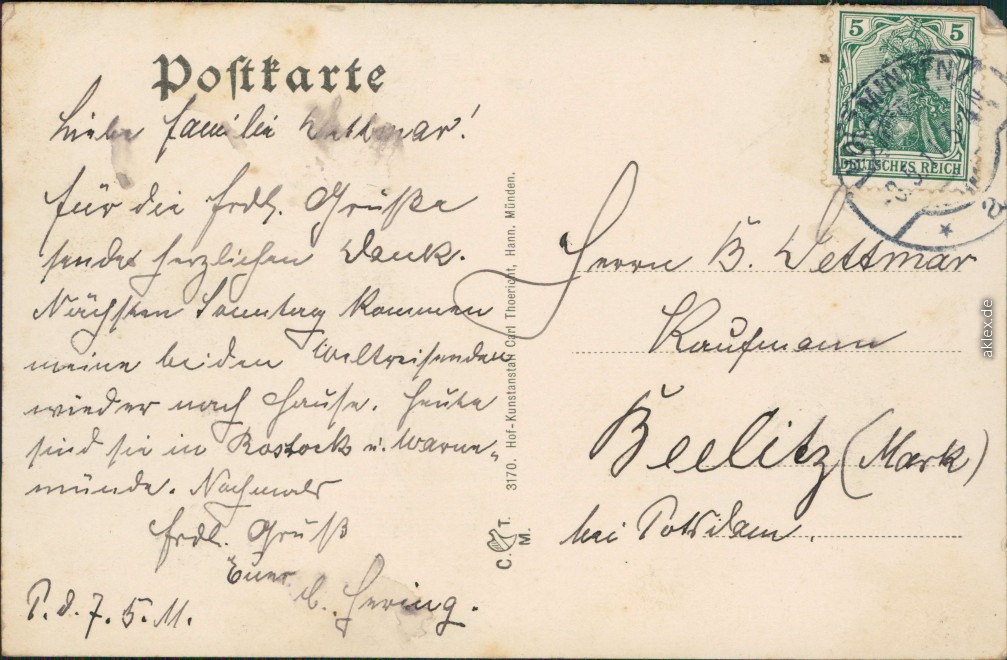 Postkarte
Liebe Familie Dettmar!
Für die frdl. Grüße
sendet herzlichen Dank.
Nächsten Sonntag kommen
meine beiden Weltreisenden
wieder nach Hause. Heute
sind sie in Rostock u. Warne-
münde. Nochmals
frdl. Gruß
Euer
Hering.
P. d. 7. 5. 11.
3170. Hof-Kunstanstalt Carl Thoericht, Hann. Münden.
C. T. M.
5 5
DEUTSCHES REICH
HOLZMINDEN
Herrn B. Dettmar
Kaufmann
Beelitz (Mark)
bei Potsdam.
aklex.de